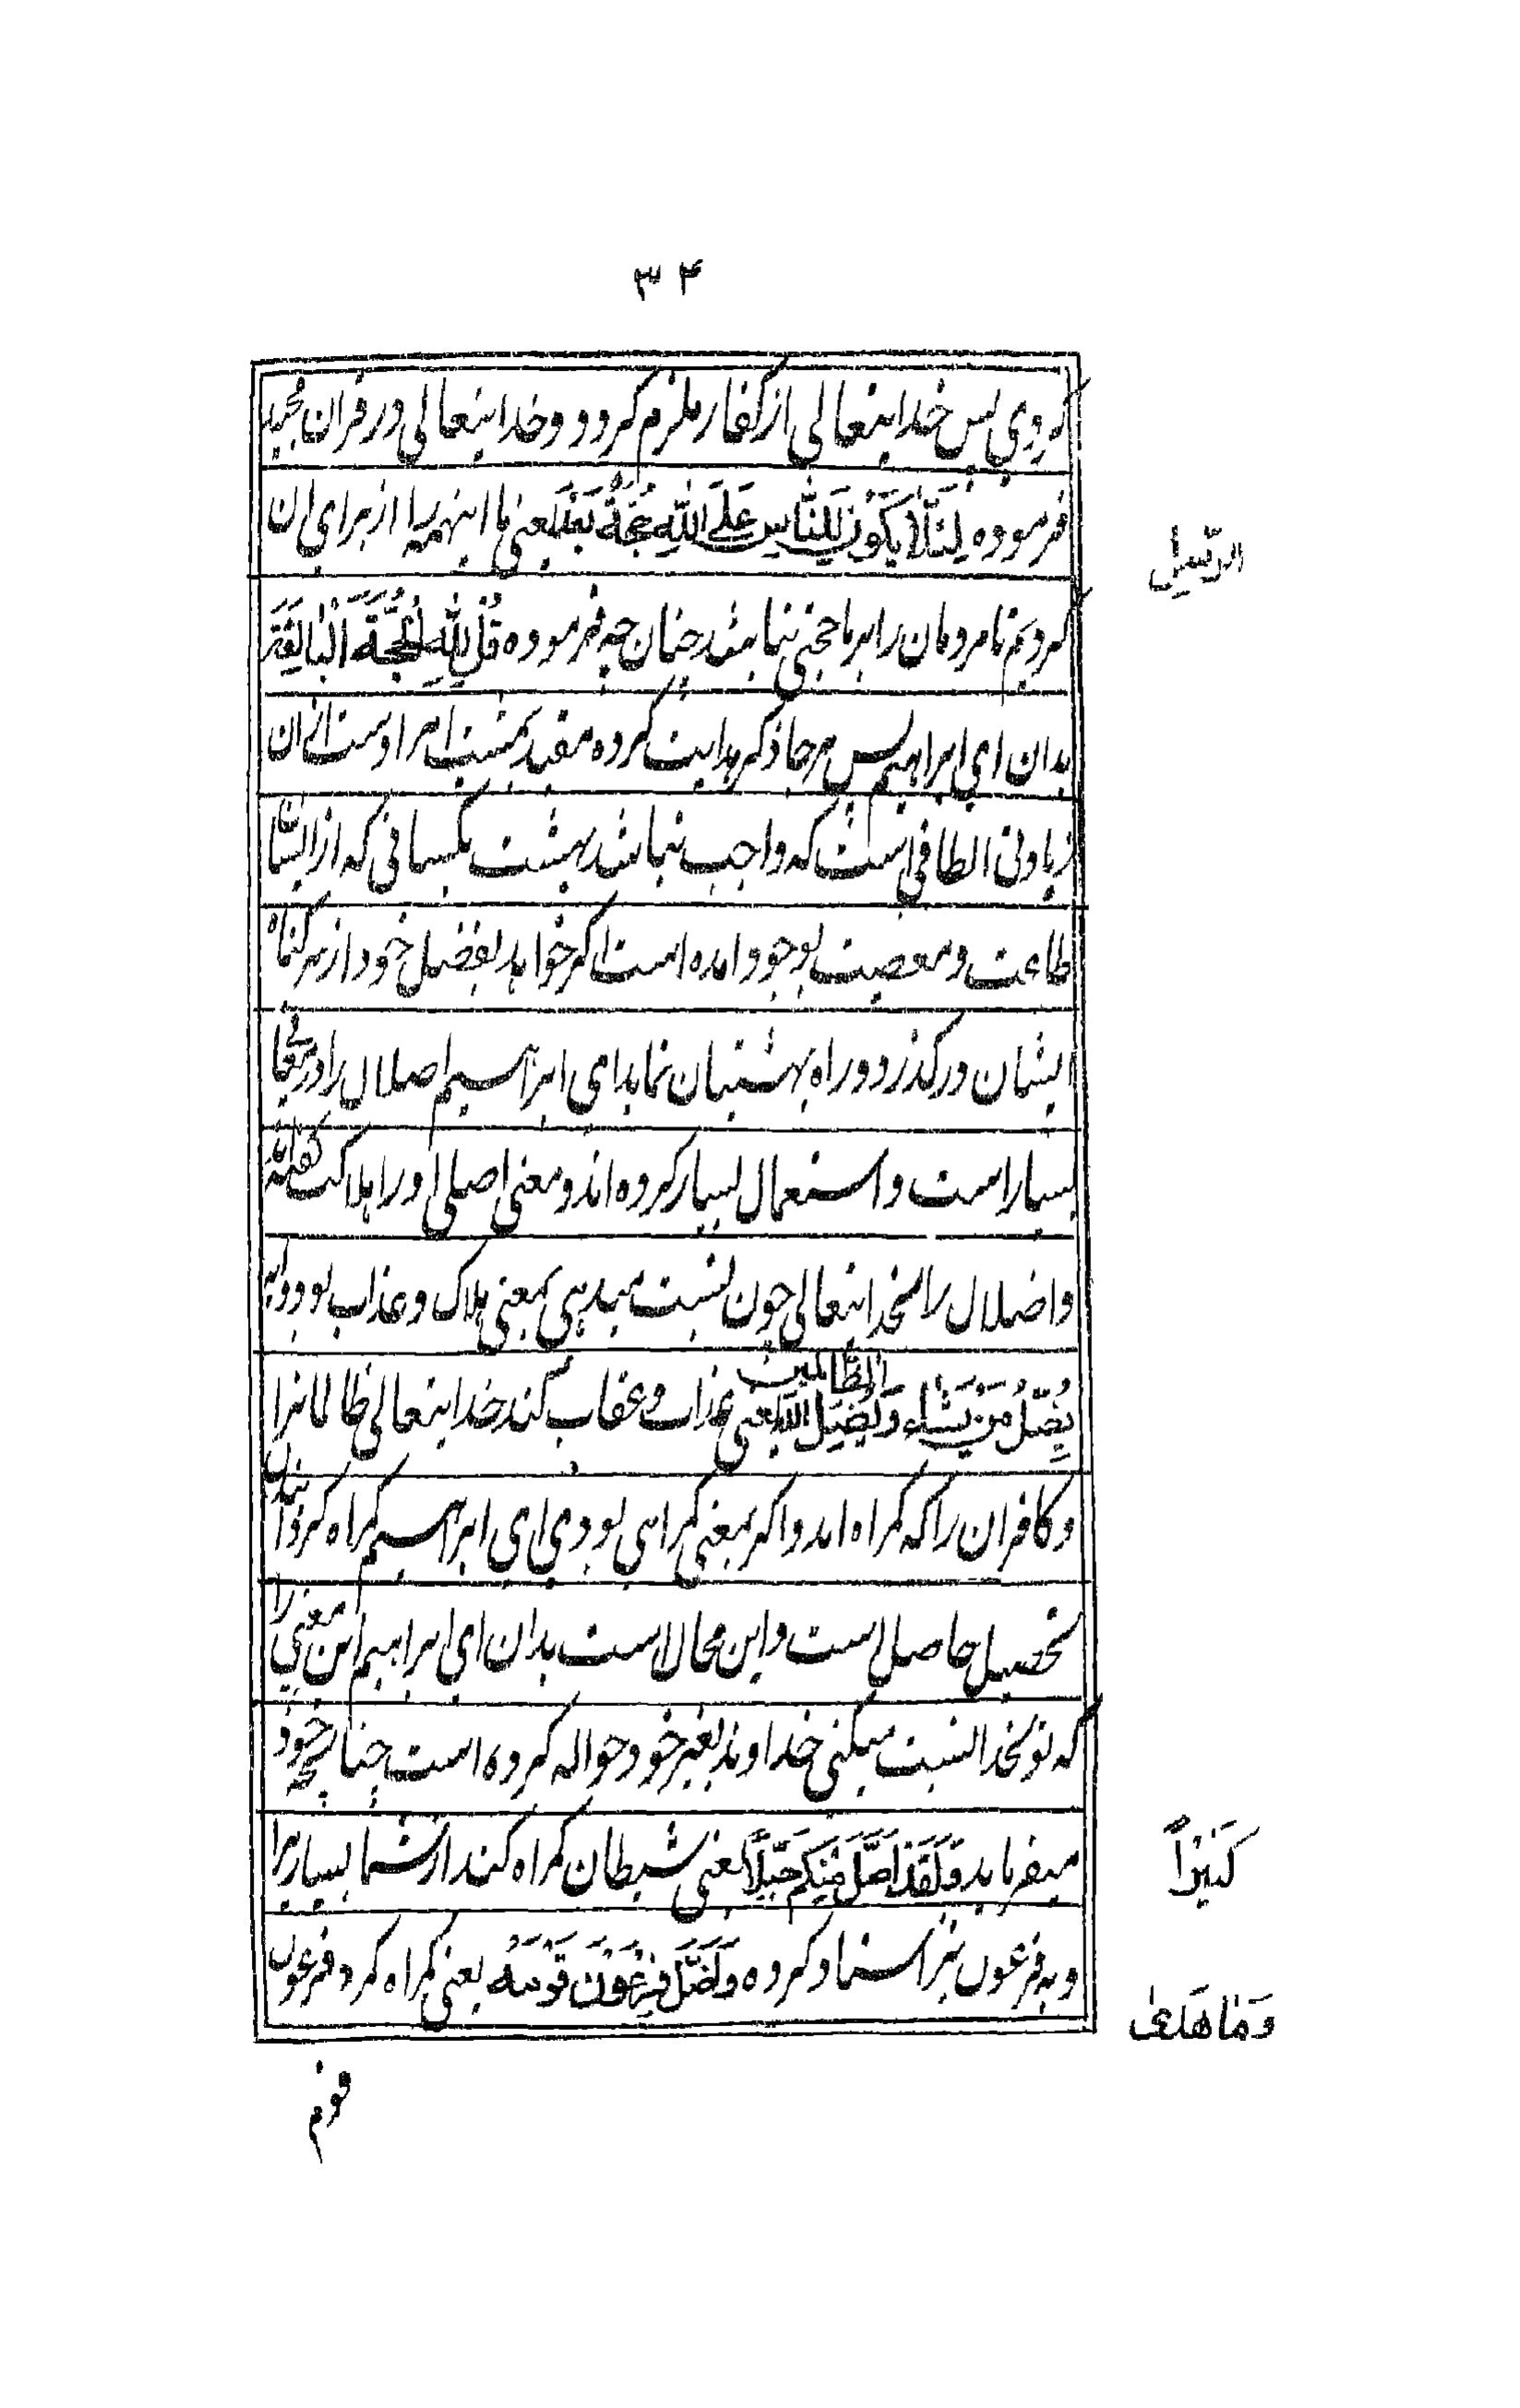 ۳۴
کردی پس خداینعالی از کفار ملزم کردد و خداینعالی در قران مجید
فرموده لِئَلَّا یَکُونَ لِلنَّاسِ عَلَی اللّٰهِ حُجَّةٌ بَعْدَ یعنی ما اینهمه را از برای ان
الرّسل
کردیم تا مردمان را بر ما حجتی نباشد چنان چه فرموده قُل لِلّٰهِ الْحُجَّةُ الْبَالِغَةُ
بدان ای ابراهیم پس هر جا ذکر هدایت کرده مقید بمشیت امر اوست از ان
زیادتی الطافی است که واجب نباشد بهشت بکسانی که از ایشان
طاعت و معصیت بوجود امده است اگر خواهد بفضل خود از سر گناه
ایشان در کذرد و راه بهشتیان نماید ای ابراهیم اضلال را در معانی
بسیار است و استعمال بسیار کرده اند و معنی اصلی او را هلاکت گفته اند
و اضلال را بخداینعالی چون نسبت میدهی بمعنی هلاک و عذاب بود
یُضِلُّ مَنْ یَشَاء وَیُضِلُّ اللّٰه الظَّالِمین یعنی عذاب و عقاب کند خداینعالی ظالمانرا
و کافران را که کمراه اند و اکر بمعنی کمراهی بودی ای ابراهیم کمراه کردن
تحصیل حاصل است و این محالست بدان ای ابراهیم این معنی را
که تو بخدا نسبت میکنی خداوند بغیر خود حواله کرده است چنانچه خود
میفرماید وَلَقَدْ اَضَلَّ مِنْکُمْ جِبِلًّا یعنی شیطان کمراه کند از شما بسیاریرا
کَثیْراً
و به فرعون نیز اسناد کرده وَاَضَلَّ فِرْعَوْنُ قَوْمَهُ یعنی کمراه کرد فرعون
وَمَا هَدٰی
قوم